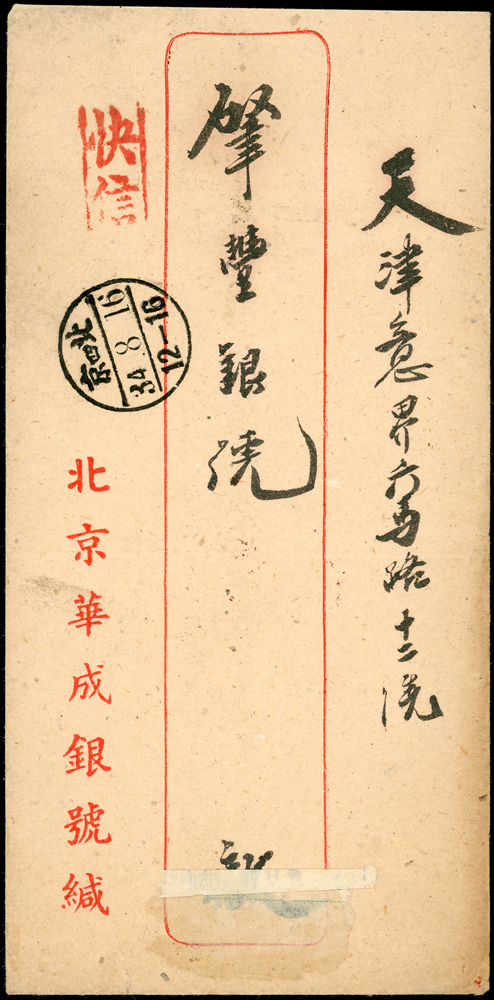 天津意界六馬路十二號
肇豐銀號
快信
北京
34 8 16
12-16
北京華成銀號緘